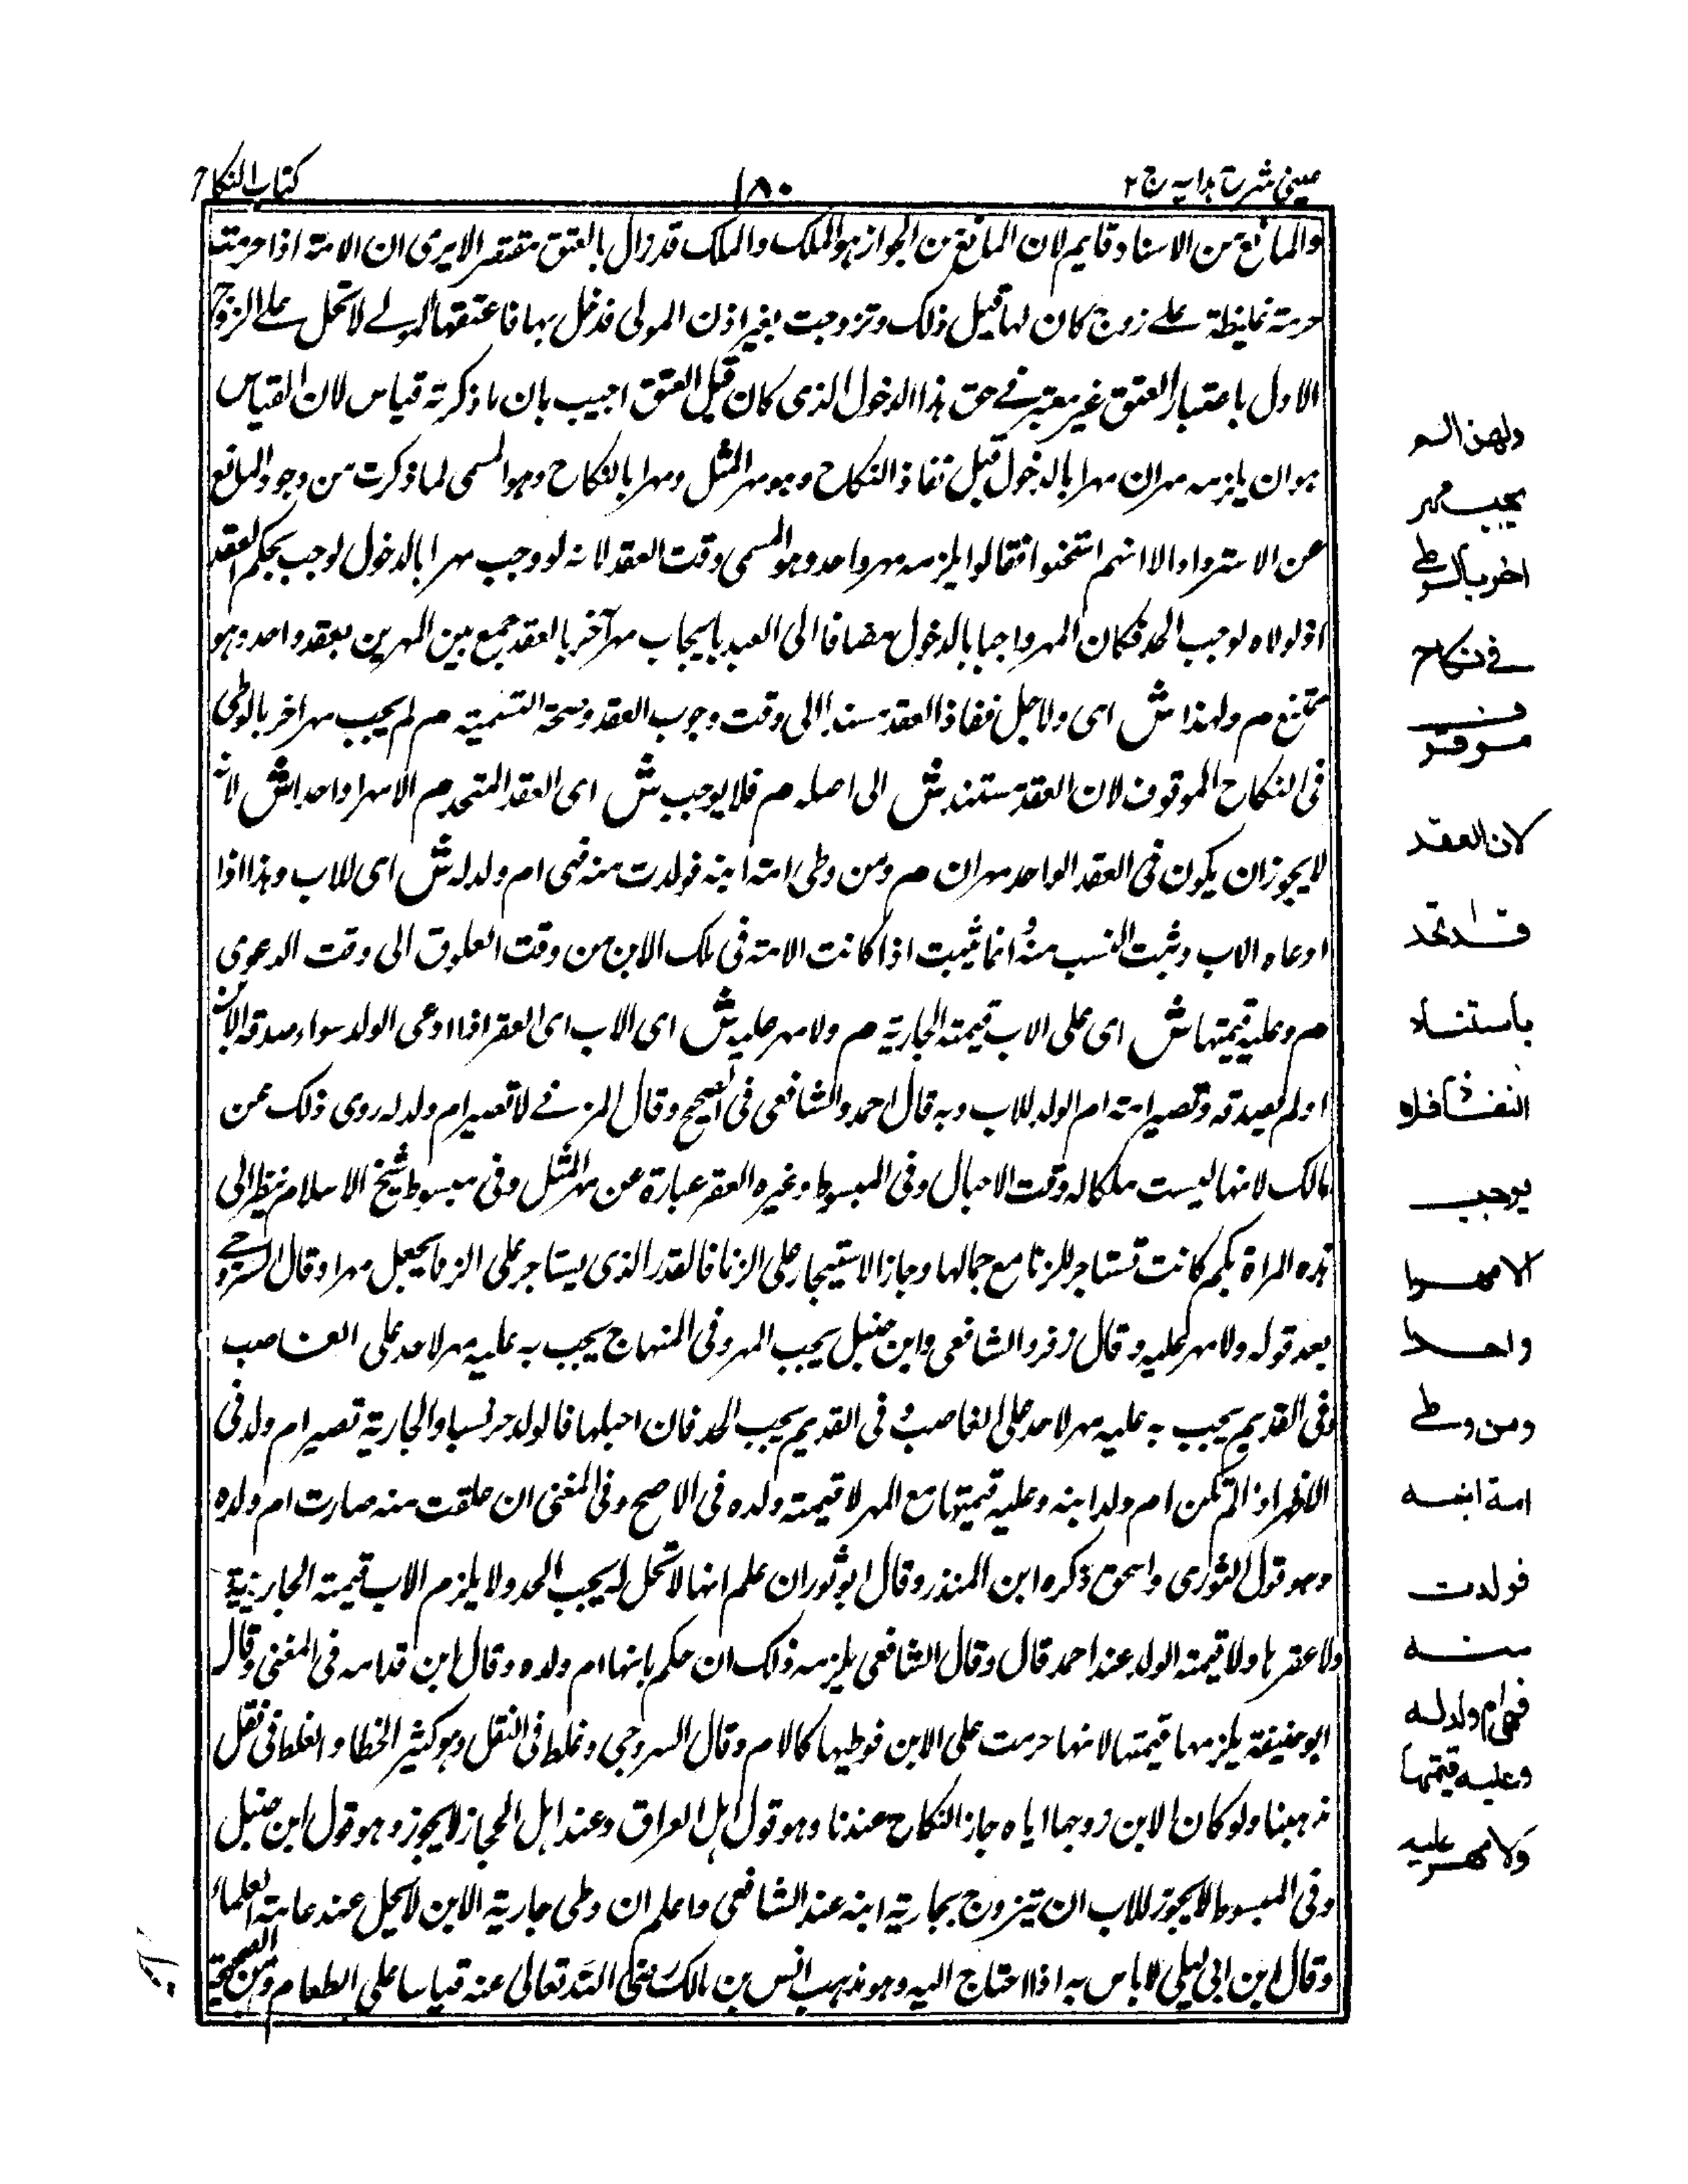 عينى شرح هدايه ج ٢
١٨٠
كتاب النكاح
والمانع من الاسناد قايم لان المانع من الجواز هو الملك والملك قد زال بالعتق مقتصر الا يرى ان الامة اذا حرمت
حرمة غليظة على زوج كان لها قبل ذلك وتزوجت بغير اذن المولى فدخل بها فاعتقها المولى لا تحل على الزوج
الاول باعتبار العتق غير معتبر فى حق هذا الدخول الذى كان قبل العتق اجيب بان ما ذكرته قياس لان القياس
هو ان يلزمه مهران مهرا بالدخول قبل نفاذ النكاح وهو مهر المثل ومهرا بالنكاح وهو المسمى لما ذكرت من وجود المانع
عن الاستناد الا انهم استحسنوا فقالوا يلزمه مهر واحد وهو المسمى وقت العقد لانه لو وجب مهرا بالدخول لوجب بحكم العقد
اذ لولاه لوجب الحد فكان المهر واجبا بالدخول مضافا الى العقد بايجاب مهر آخر بالعقد جمع بين المهرين بعقد واحد وهو
ممتنع م ولهذا ش اى ولاجل نفاذ العقد مسندا الى وقت وجوب العقد وصحة التسمية م لم يجب مهر اخر بالوطى
فى النكاح الموقوف لان العقد مستند ش الى اصله م فلا يوجب ش اى العقد المتحد م الا مهرا واحدا ش لانه
لا يجوز ان يكون فى العقد الواحد مهران م ومن وطى امة ابنه فولدت منه فهى ام ولد له ش اى للاب وهذا اذا
ادعاه الاب وثبت النسب منه انما يثبت اذا كانت الامة فى ملك الابن من وقت العلوق الى وقت الدعوى
م وعليه قيمتها ش اى على الاب قيمة الجارية م ولا مهر عليه ش اى الاب اى العقر اذا ادعى الولد سواء صدقه الابن
او لم يصدقه وتصير امته ام الولد للاب وبه قال احمد والشافعى فى الصحيح وقال المزنى لا تصير ام ولد له روى ذلك عن
مالك لانها ليست ملكا له وقت الاحبال وفى المبسوط وغيره العقر عبارة عن مهر المثل وفى مبسوط شيخ الاسلام ينظر الى
هذه المراة بكم كانت تستاجر للزنا مع جمالها وجاز الاستيجار على الزنا فالقدر الذى يستاجر على الزنا يجعل مهرا وقال السروجى
بعد قوله ولا مهر عليه وقال زفر والشافعى وابن حنبل يجب المهر وفى المنهاج يجب به عليه مهر لا حد على الغاصب
وفى القديم يجب به عليه مهر لا حد على الغاصب وفى القديم يجب الحد فان احبلها فالولد حر نسبا والجارية تصير ام ولد فى
الاظهر اذا لم تكن ام ولد ابنه وعليه قيمتها مع المهر لا قيمة ولده فى الاصح وفى المغنى ان علقت منه صارت ام ولده
وهو قول الثورى واسحق ذكره ابن المنذر وقال ابو ثور ان علم انها لا تحل له يجب الحد ولا يلزم الاب قيمة الجارية
ولا عقرها ولا قيمة الولد عند احمد قال وقال الشافعى يلزمه ذلك ان حكم بانها ام ولده وقال ابن قدامه فى المغنى وقال
ابو حنيفة يلزمها قيمتها لانها حرمت على الابن فوطيها كالام وقال السروجى وغلط فى النقل وهو كثير الخطا والغلط فى نقل
مذهبنا ولو كان الابن زوجها اياه جاز النكاح عندنا وهو قول اهل العراق وعند اهل الحجاز لا يجوز وهو قول ابن حنبل
وفى المبسوط لا يجوز للاب ان يتزوج بجارية ابنه عند الشافعى واعلم ان وطى جارية الابن لا يحل عند عامة العلماء
وقال ابن ابى ليلى لا باس به اذا احتاج اليه وهو مذهب انس بن مالك رضى الله تعالى عنه قياسا على الطعام ومن الصحيح
ولهذا لم
يجب مهر
اخر بالوطى
فى نكاح
موقوف
لان العقد
قد اتحد
باستناد
النفاذ فلا
يوجب
الا مهرا
واحدا
ومن وطى
امة ابنه
فولدت
منه
فهى ام ولد له
وعليه قيمتها
ولا مهر عليه